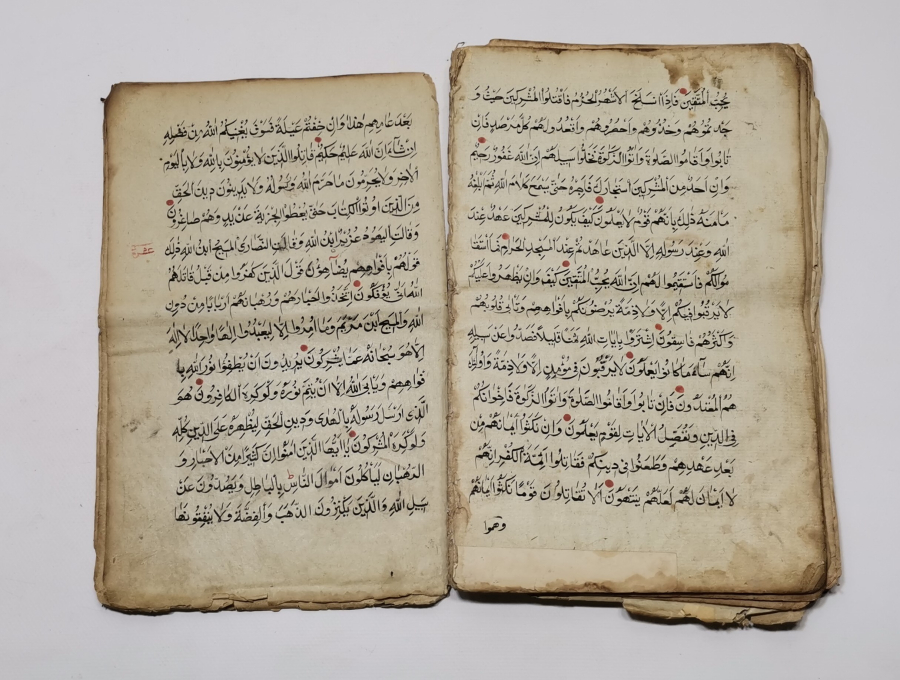 يحب المتقين فاذا انسلخ الاشهر الحرم فاقتلوا المشركين حيث و
جدتموهم وخذوهم واحصروهم واقعدوا لهم كل مرصد فان
تابوا واقاموا الصلوة واتوا الزكوة فخلوا سبيلهم ان الله غفور رحيم
وان احد من المشركين استجارك فاجره حتى يسمع كلام الله ثم ابلغه
مامنه ذلك بانهم قوم لا يعلمون كيف يكون للمشركين عهد عند
الله وعند رسوله الا الذين عاهدتم عند المسجد الحرام فما استقا
موا لكم فاستقيموا لهم ان الله يحب المتقين كيف وان يظهروا عليكم
لا يرقبوا فيكم الا ولا ذمة يرضونكم بافواههم وتابى قلوبهم
واكثرهم فاسقون اشتروا بايات الله ثمنا قليلا فصدوا عن سبيله
انهم ساء ما كانوا يعملون لا يرقبون في مؤمن الا ولا ذمة واولئك
هم المعتدون فان تابوا واقاموا الصلوة واتوا الزكوة فاخوانكم
في الدين ونفصل الايات لقوم يعلمون وان نكثوا ايمانهم من
بعد عهدهم وطعنوا في دينكم فقاتلوا ائمة الكفر انهم
لا ايمان لهم لعلهم ينتهون الا تقاتلون قوما نكثوا ايمانهم
وهموا
بعد عامهم هذا وان خفتم عيلة فسوف يغنيكم الله من فضله
ان شاء ان الله عليم حكيم قاتلوا الذين لا يؤمنون بالله ولا باليوم
الاخر ولا يحرمون ما حرم الله ورسوله ولا يدينون دين الحق
من الذين اوتوا الكتاب حتى يعطوا الجزية عن يد وهم صاغرون
وقالت اليهود عزير ابن الله وقالت النصارى المسيح ابن الله ذلك
قولهم بافواههم يضاهؤن قول الذين كفروا من قبل قاتلهم
الله انى يؤفكون اتخذوا احبارهم ورهبانهم اربابا من دون
الله والمسيح ابن مريم وما امروا الا ليعبدوا الها واحدا لا اله
الا هو سبحانه عما يشركون يريدون ان يطفؤا نور الله با
فواههم ويابى الله الا ان يتم نوره ولو كره الكافرون هو
الذي ارسل رسوله بالهدى ودين الحق ليظهره على الدين كله
ولو كره المشركون يا ايها الذين امنوا ان كثيرا من الاحبار و
الرهبان لياكلون اموال الناس بالباطل ويصدون عن
سبيل الله والذين يكنزون الذهب والفضة ولا ينفقونها